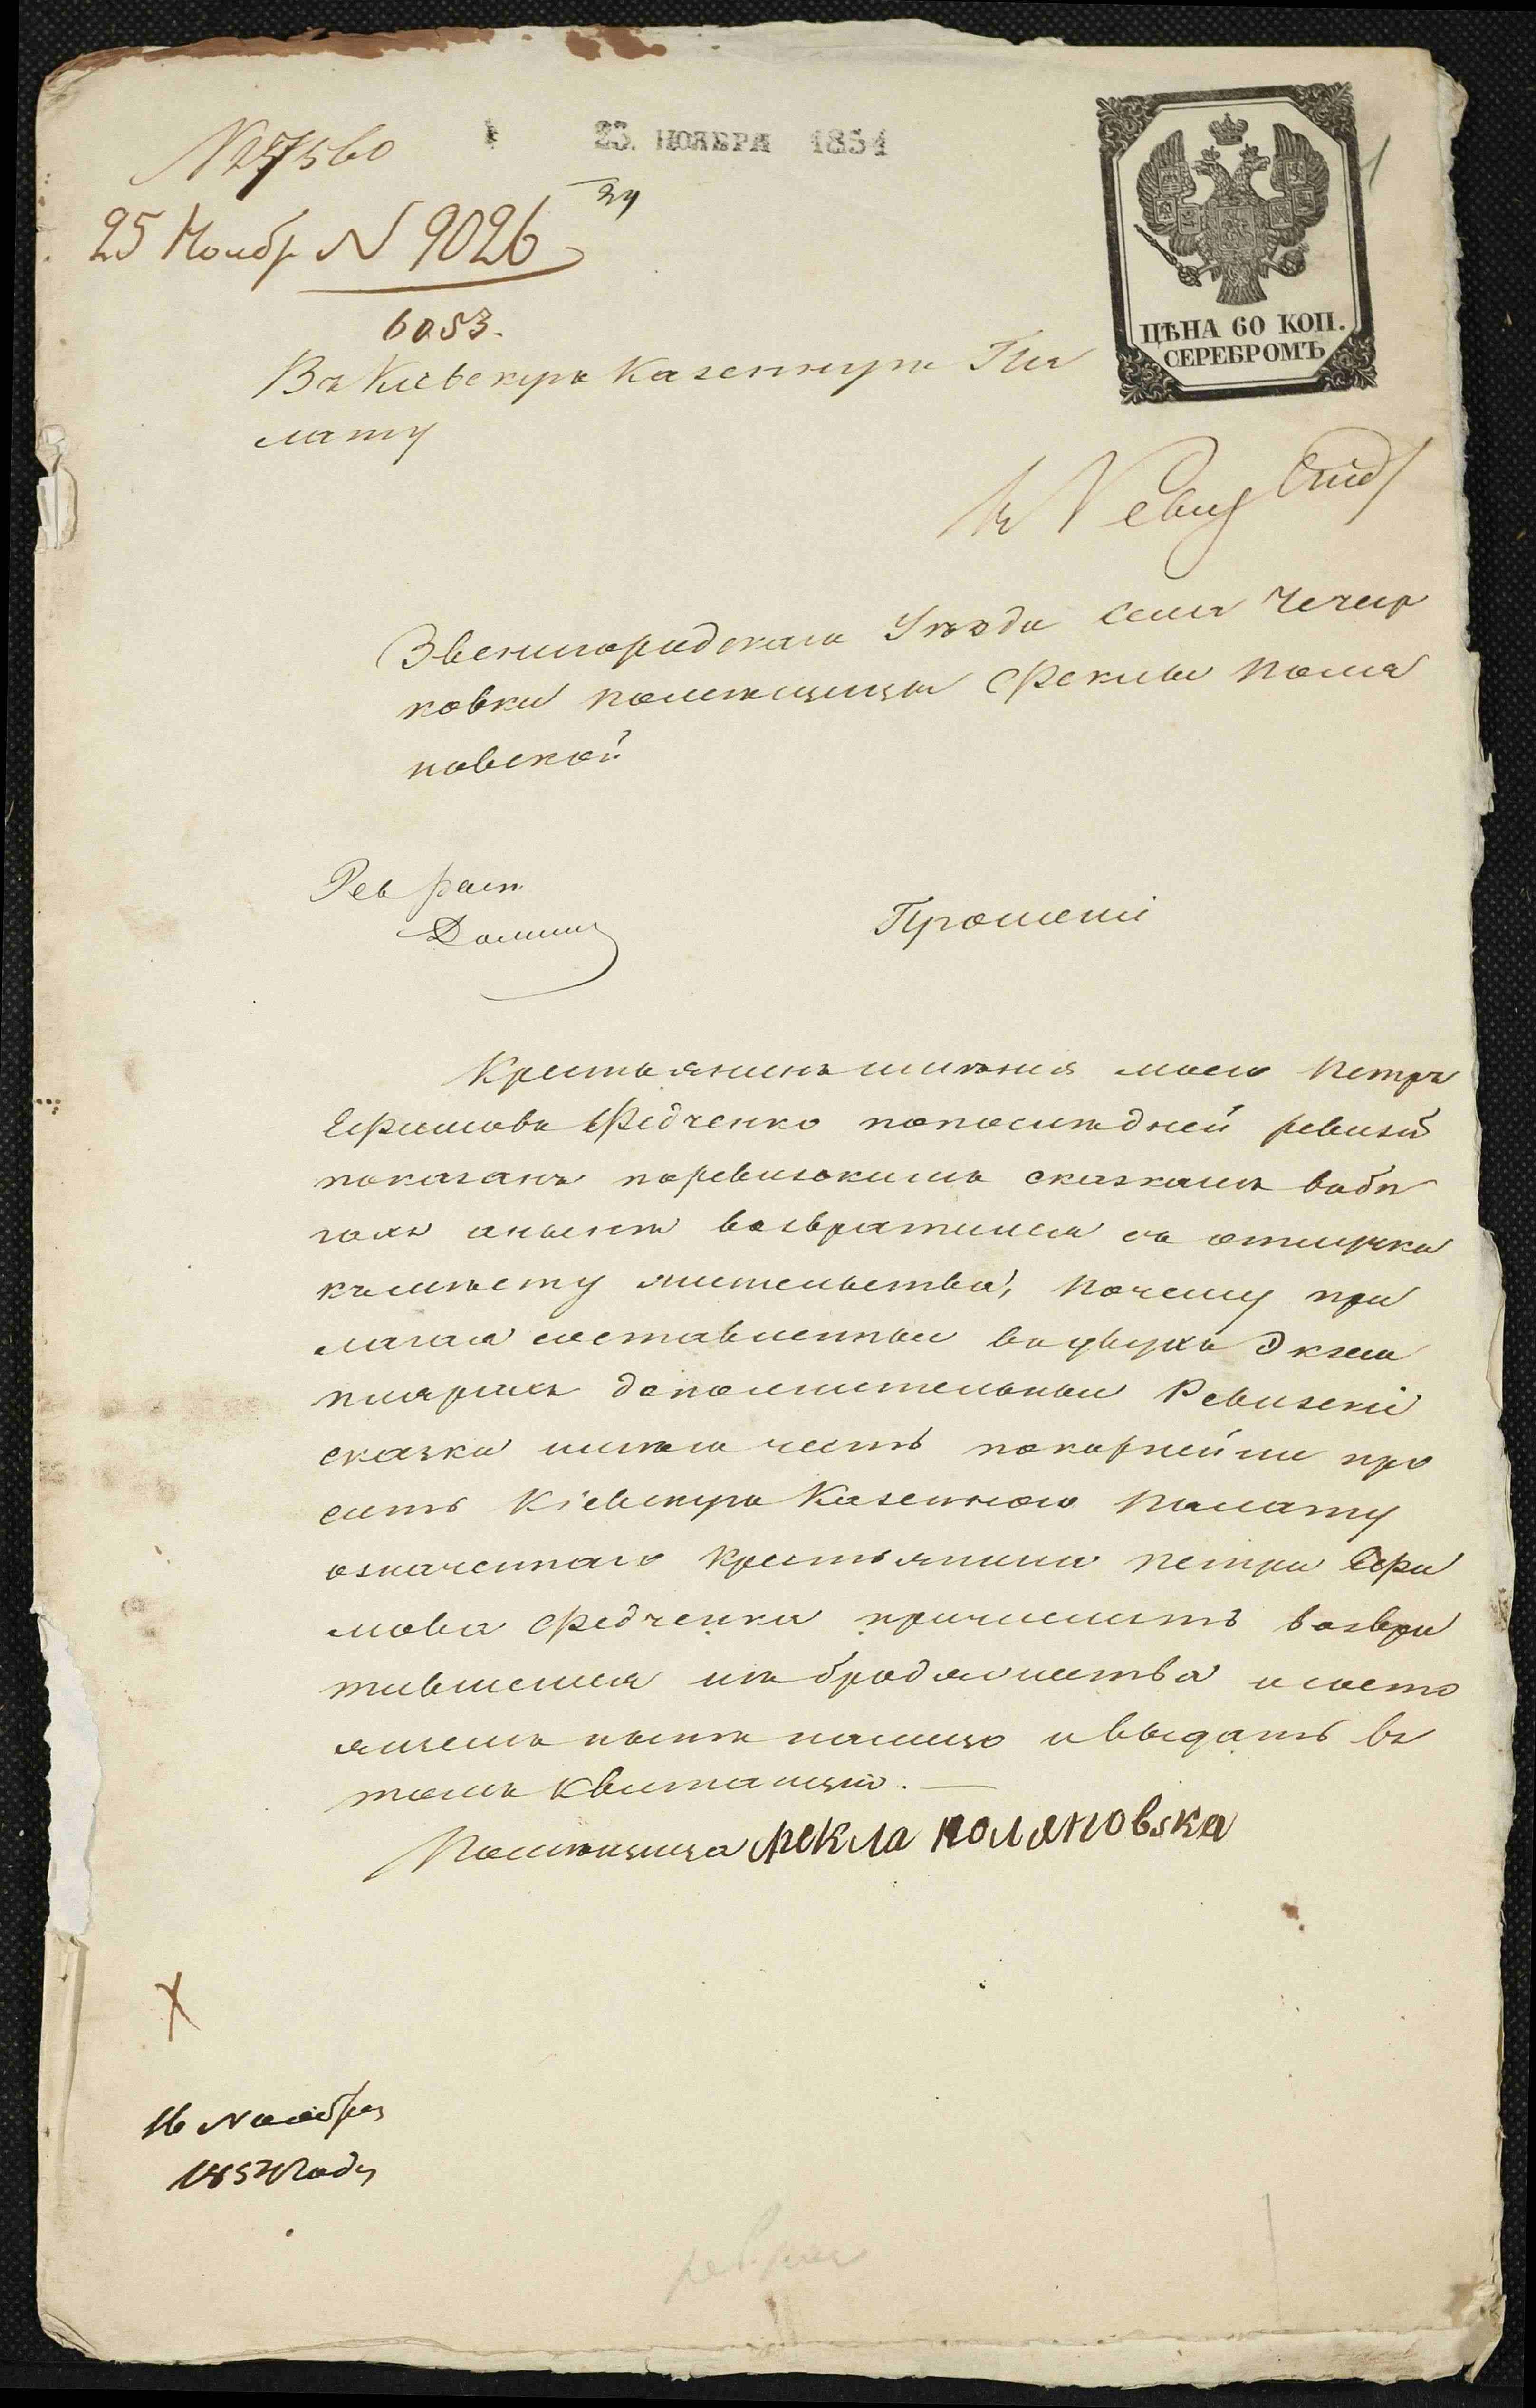 № 27560
23. НОЯБРЯ 1854
25 Нояб № 9026
6053.
ЦѢНА 60 КОП.
СЕРЕБРОМЪ
1
Въ Кіевскую Казенную Па
лату
въ Ревиз Отд
Звенигородскаго Уѣзда села Чечир
ковки помѣщицы Феклы Поля
новской
Рев
Прошеніе
Крестьянинъ имѣнія моего Петръ
Ефимовъ Федченко попослѣдней ревизіи
показанъ поревизскимъ сказкамъ вобѣ
гахъ анынѣ возвратился съ отлучки
къмѣсту жительства, почему при
лагая составленныя вадвухъ Экзем
плярахъ дополнительныя Ревизскіе
сказки имѣю честь покорнейше про
сить Кіевскую Казенною Палату
означеннаго Крестьянина Петра Ефи
мова Федченка причислить возвра
тившемся изъ бродяжества исосто
ящемъ нынѣ налицо ивыдать въ
томъ Квитанцію.
Помѣщица Фекла Поляновска
16 Ноября
1854 Года